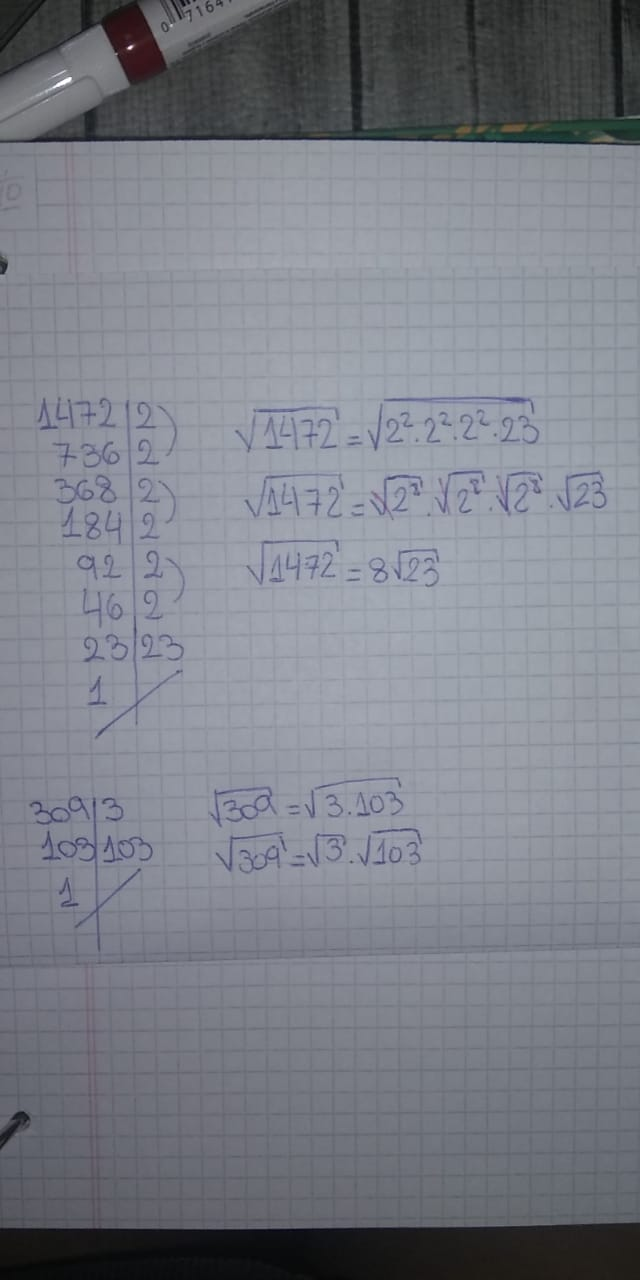 07164
10
1472|2
736|2
368|2
184|2
92|2
46|2
23|23
1
√1472 = √2²·2²·2²·23
√1472 = √2²·√2²·√2²·√23
√1472 = 8√23
309|3
103|103
1
√309 = √3·103
√309 = √3·√103